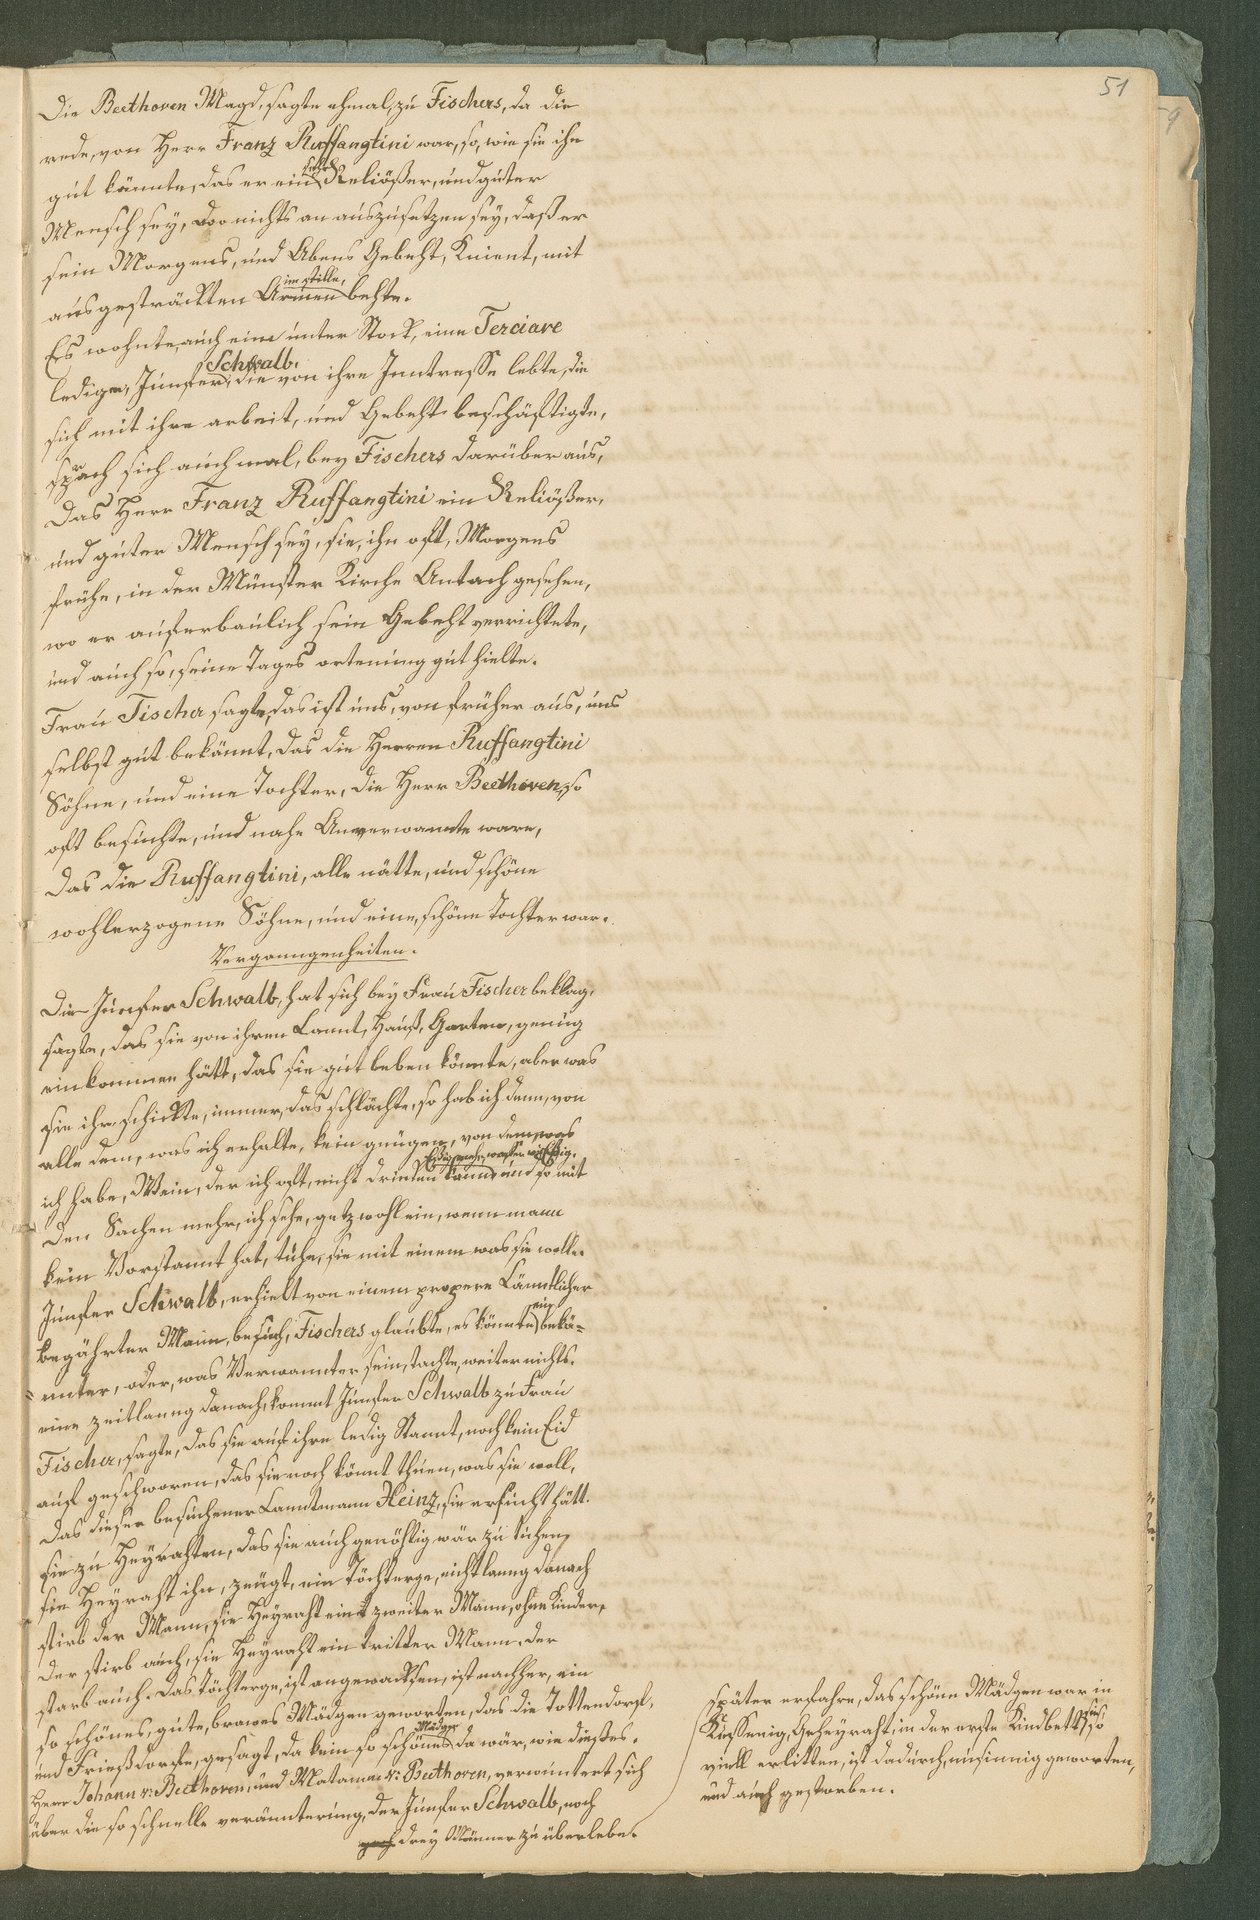 51
Die Beethoven Magd, sagte ehmal, zu Fischers, da die
rede, von Herr Franz Ruffangtini war, so, wie sie ihn
gut kännte, das er ein sehr Reliößer, und guter
Mensch sey, woo nichts an auszusetzen sey, daß er
sein Morgens, und Abens Gebeht, Knient, mit
ausgesträckten Armen im stille, behte.
Es wohnte, auch eine unter Stock, eine Terciare
lediger, Junfer, Schwalb, die von ihre Inntresse lebte, die
sich mit ihre arbeit, und Gebeht beschäftigte,
sprach sich auch mal, bey Fischers darüber aus,
Das Herr Franz Ruffangtini ein Reliößer,
und guter Mensch sey, sie, ihn oft, Morgens
frühe, in der Münster Kirche Antach gesehen,
wo er auferbaulich sein Gebeht verrichtete,
und auch so, seine Tages ortenung gut hielte.
Frau Fischer sagte, das ist uns, von früher aus, uns
selbst gut bekännt, das die Herren Ruffangtini
Söhne, und eine Tochter, die Herr Beethoven, so
oft besuchte, und nahe Anverwannte ware,
Das die Ruffangtini, alle nätte, und schöne
wohlerzogene Söhne, und eine, schöne Tochter war.
Verganngenheiten.
Die Junfer Schwalb, hat sich bey Frau Fischer beklag,
sagte, das sie von ihren Lannt, Hauß, Garten, genug
einkommen hätt, das sie gut leben könnte, aber was
sie ihr schickte, immer, das schlächte, so hab ich dann, von
alle dem, was ich erhalte, kein gnügen, von dem, was
ich habe, Wein, der ich oft, nicht drinken kann, und so mit
Den Sachen mehr, ich sehe, getz wohl ein, wenn mann
kein Vorstannt hat, tuhe, sie mit einem was sie wolle.
Junfer Schwalb, erhielt von einem propere Länntlicher
begährter Mann, besuch, Fischers glaubte, es könnte ein bekä=
=nnter, oder, was Verwannter sein, tachte, weiter nichts.
eine zeitlanng danach, kommt Junfer Schwalb zu Frau
Fischer, sagte, das sie auf ihre ledig Stannt, noch kein Eid
auf geschworen, das sie noch könnt thuen, was sie woll,
Das dieser besuchener Lanntmann Heinz, sie ersucht hätt.
sie zu Heyrahten, das sie auch genöhtig wär zu tuhen,
sie Heyraht ihn, zeugt, ein Töchterge, nicht lanng danach
stirb der Mann, sie Heyraht eint zweiter Mann, ohne Kinder,
Der stirb auch, sie Heyraht ein tritter Mann, der
starb auch. Das Töchterge, ist angewacksen, ist nachher, ein
so schönes, gute, brawes Mädgen geworten, das die Tottendorf,
und Frießdorfer, gesagt, da kein so schönes Mädgen da wär, wie dießes.
Herr Johann v: Beethoven, und Matamm v: Beethoven, verwuntert sich
über die so schnelle veränntering, der Junfer Schwalb, noch
drey Männer zu überlebe.
später erfahre, das schöne Mädgen war in
Kessenig, Geheyraht, in der erste Kindbett, sie so
viell erlitten, ist dadurch, unsinnig geworten,
und auch gestorben.